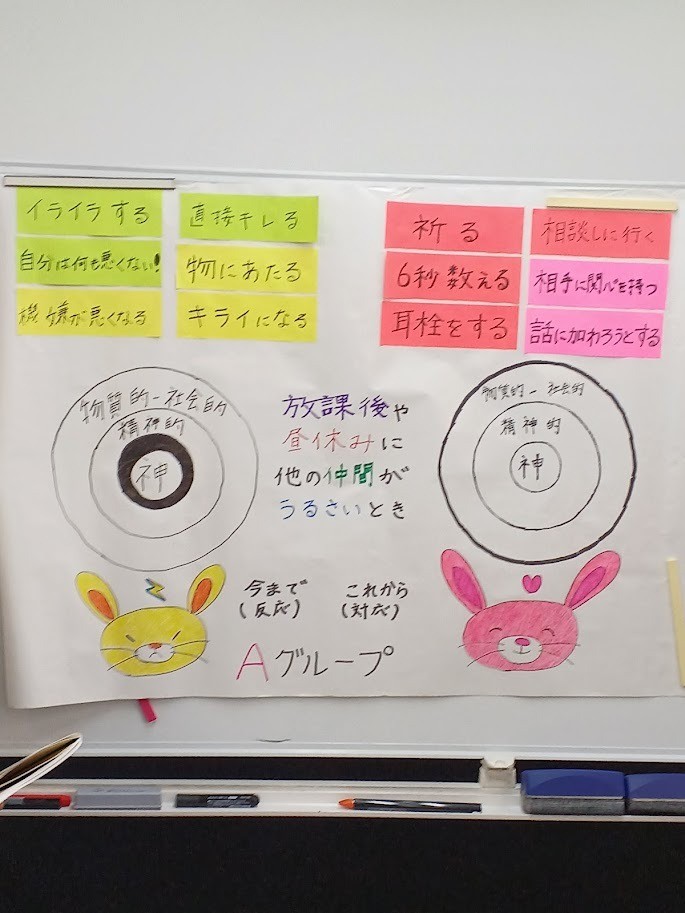 イライラする
直接キレる
自分は何も悪くない!
物にあたる
機嫌が悪くなる
キライになる
祈る
相談しに行く
6秒数える
相手に関心を持つ
耳栓をする
話に加わろうとする
物質的-社会的
精神的
神
放課後や
昼休みに
他の仲間が
うるさいとき
物質的-社会的
精神的
神
今まで
(反応)
これから
(対応)
Aグループ